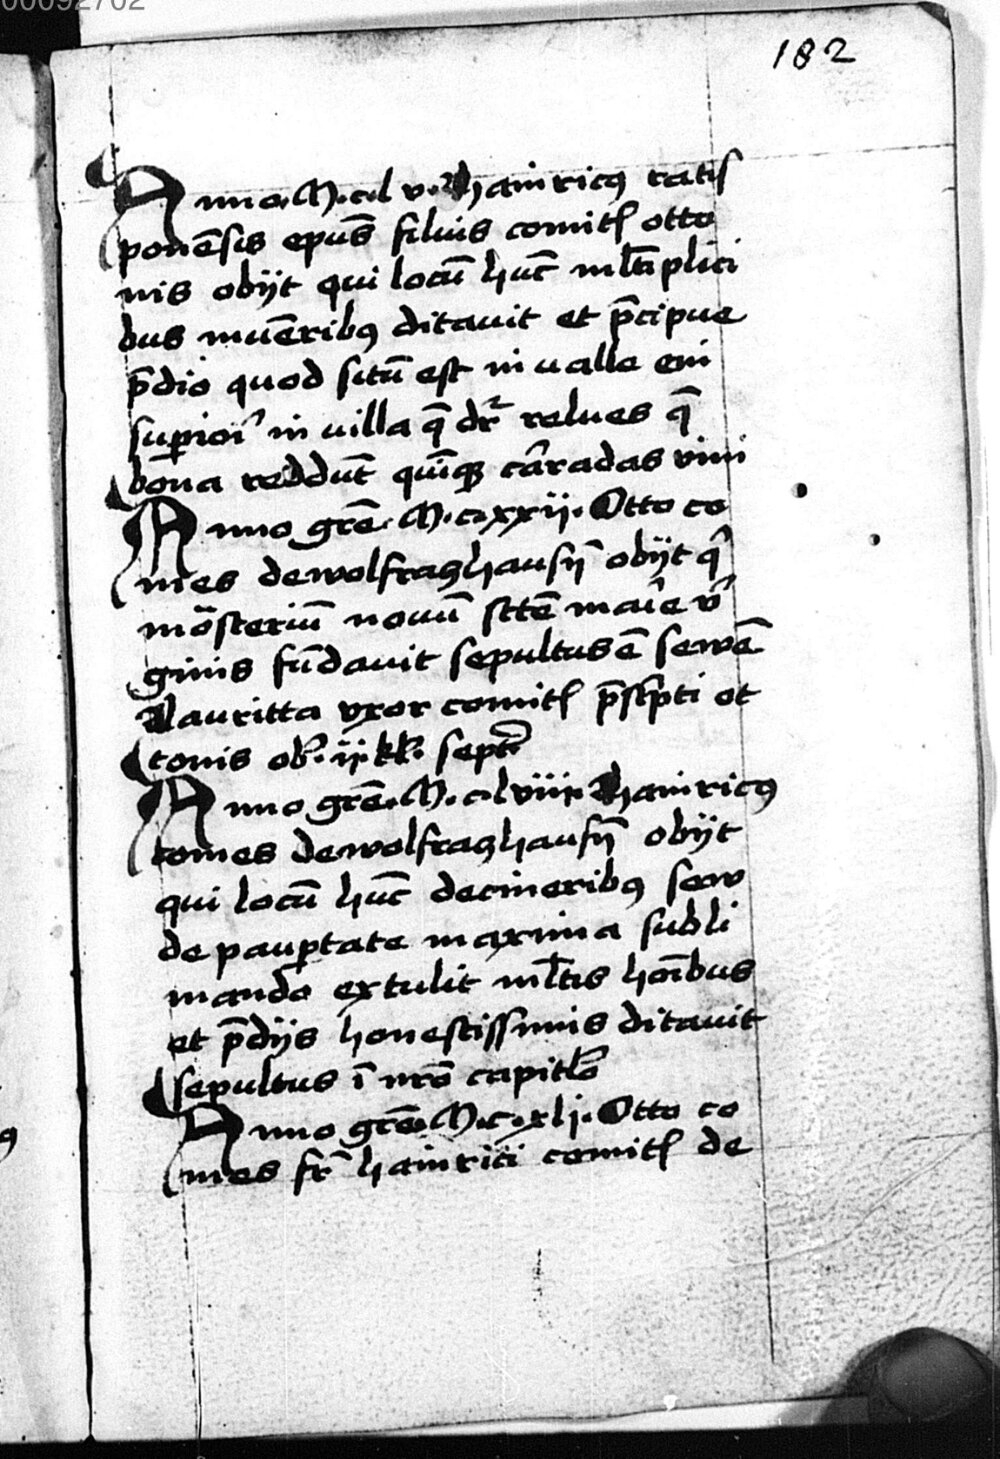 00092702
182
Anno. M. c. l v. Hainricꝰ ratis
ponēsis epūs filius comitꝭ otto
nis obijt qui locū hūc ml̄tiplici
bus mūeribꝰ ditauit et p̄cipue
p̄dio quod sitū est in valle eni
superiori in uilla q̄ dr̄ relues q̄
bona reddūt quīqꝫ cāradas vini
Anno grē. M. c. xxij. Otto co
mes de wolfraꝫhausn̄ obijt qͥ
mōsteriū nouū sctē marie vͥ
ginis fūdauit sepultus ē sewē
Lauritta vxor comitꝭ p̄sc̄pti ot
tonis ob. ij. kl. sept̄
Anno grē. M. c. lviij. Hainricꝰ
comes de wolfraꝫhausn̄ obijt
qui locū hūc de cineribꝰ sew
de paup̄tate maxima subli
mando extulit ml̄tis hoībus
et p̄dijs honestissimis ditauit
sepultus ī nr̄o capitl̄o
Anno grē. M. c. xlj. Otto co
mes fr̄ hainrici comitꝭ de